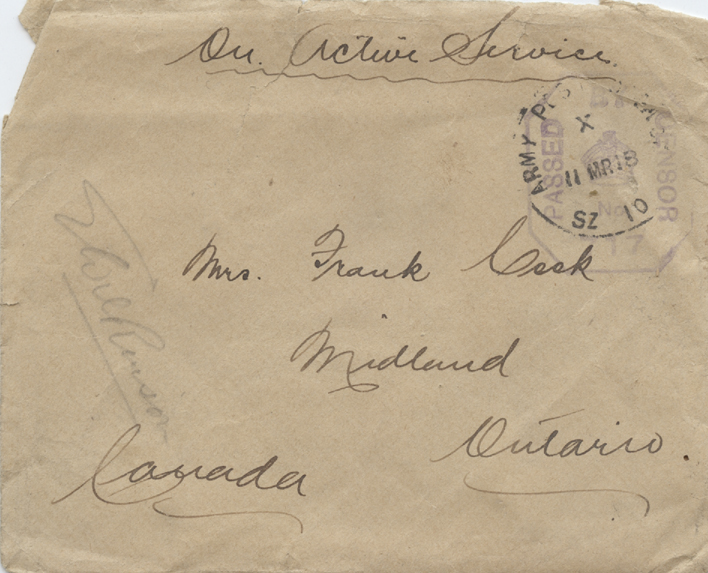 On Active Service
ARMY POST
X
11 MR 18
SZ 10
PASSED BY CENSOR
No
Mrs. Frank Cook
Midland
Ontario.
Canada